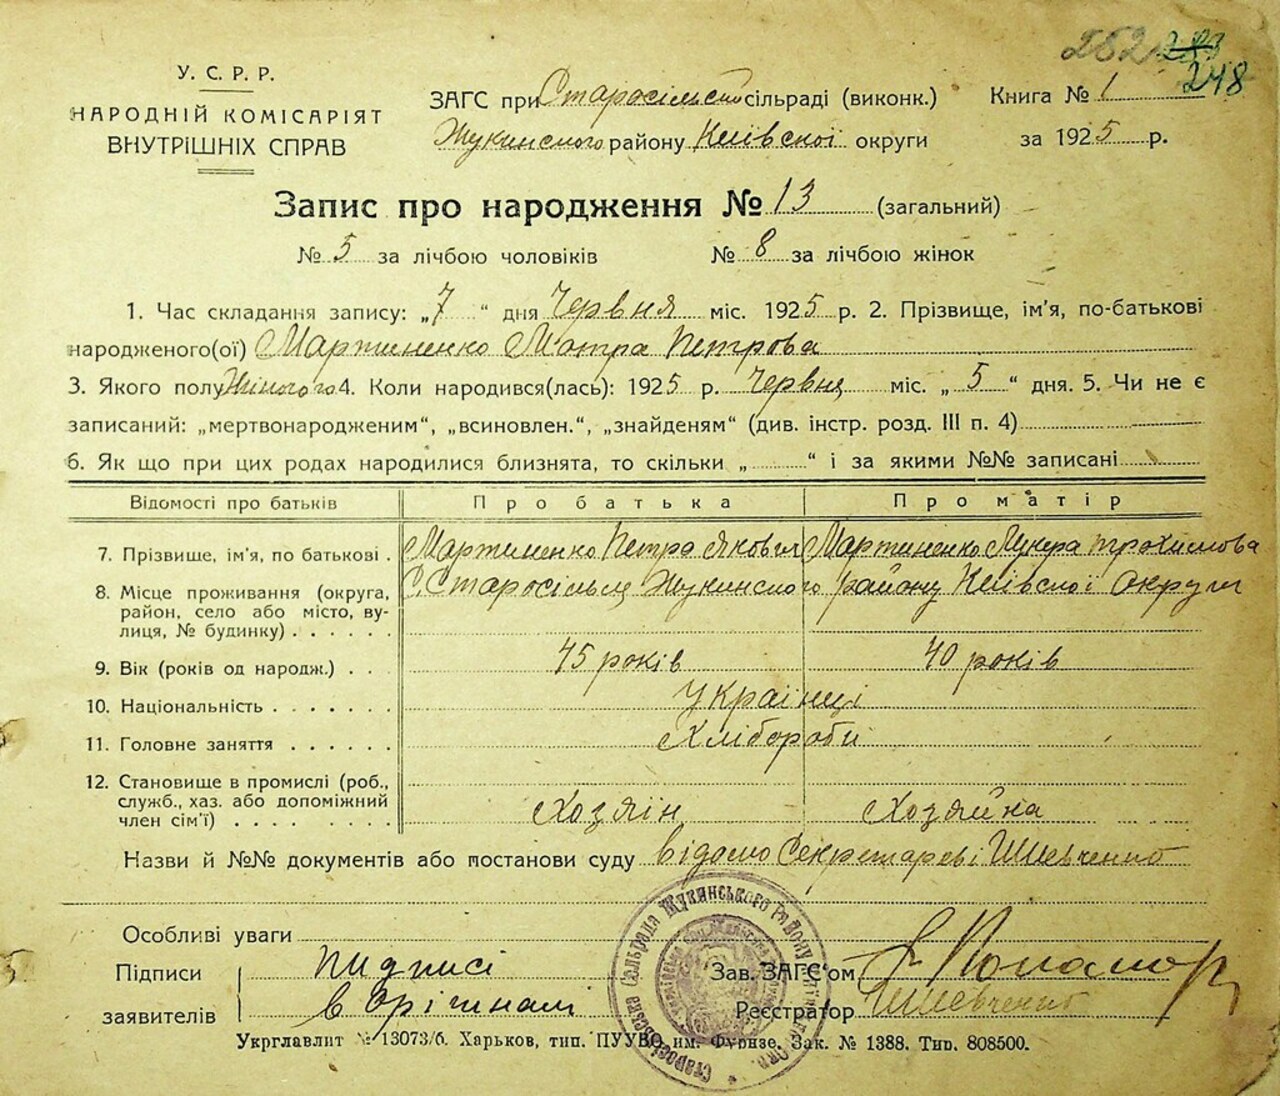 252 283
248
У. С. Р. Р.
НАРОДНІЙ КОМІСАРІЯТ
ВНУТРІШНІХ СПРАВ
ЗАГС при Старосільско сільраді (виконк.)
Жукинсного району Київскої округи
Книга № 1
за 1925 р.
Запис про народження № 13 (загальний)
№ 5 за лічбою чоловіків № 8 за лічбою жінок
1. Час складання запису: „7“ дня Червня міс. 1925 р. 2. Прізвище, ім'я, по-батькові
народженого(ої) Мартиненко Мотра Петрова
3. Якого полу Жіного 4. Коли народився(лась): 1925 р. Червня міс. „5“ дня. 5. Чи не є
записаний: „мертвонародженим“, „всиновлен.“, „знайденям“ (див. інстр. розд. III п. 4)
6. Як що при цих родах народилися близнята, то скільки „ “ і за якими №№ записані
Відомості про батьків Про батька Про матір
7. Прізвище, ім'я, по батькові . Мартиненко Петро Якович Мартиненко Лукера Трохимова
8. Місце проживання (округа, С. Старосілля Жукинсного району Київскої Округи
район, село або місто, ву-
лиця, № будинку) . . . . . .
9. Вік (років од народж.) . . . 45 років 40 років
10. Національність . . . . . . . Українці
11. Головне заняття . . . . . . Хлібороби
12. Становище в промислі (роб.,
служб., хаз. або допоміжний
член сім'ї) . . . . . . . . Хозяін Хозяйка
Назви й №№ документів або постанови суду відомо Секретареві Шевченко
Особливі уваги
Підписи підписі Зав. ЗАГС'ом
заявителів в орігіналі Реєстратор Шевченко
Старосільська Сільрада Жукинського Району
Укрглавлит № 13073/6. Харьков, тип. ПУУВО им. Фрунзе. Зак. № 1388. Тир. 808500.